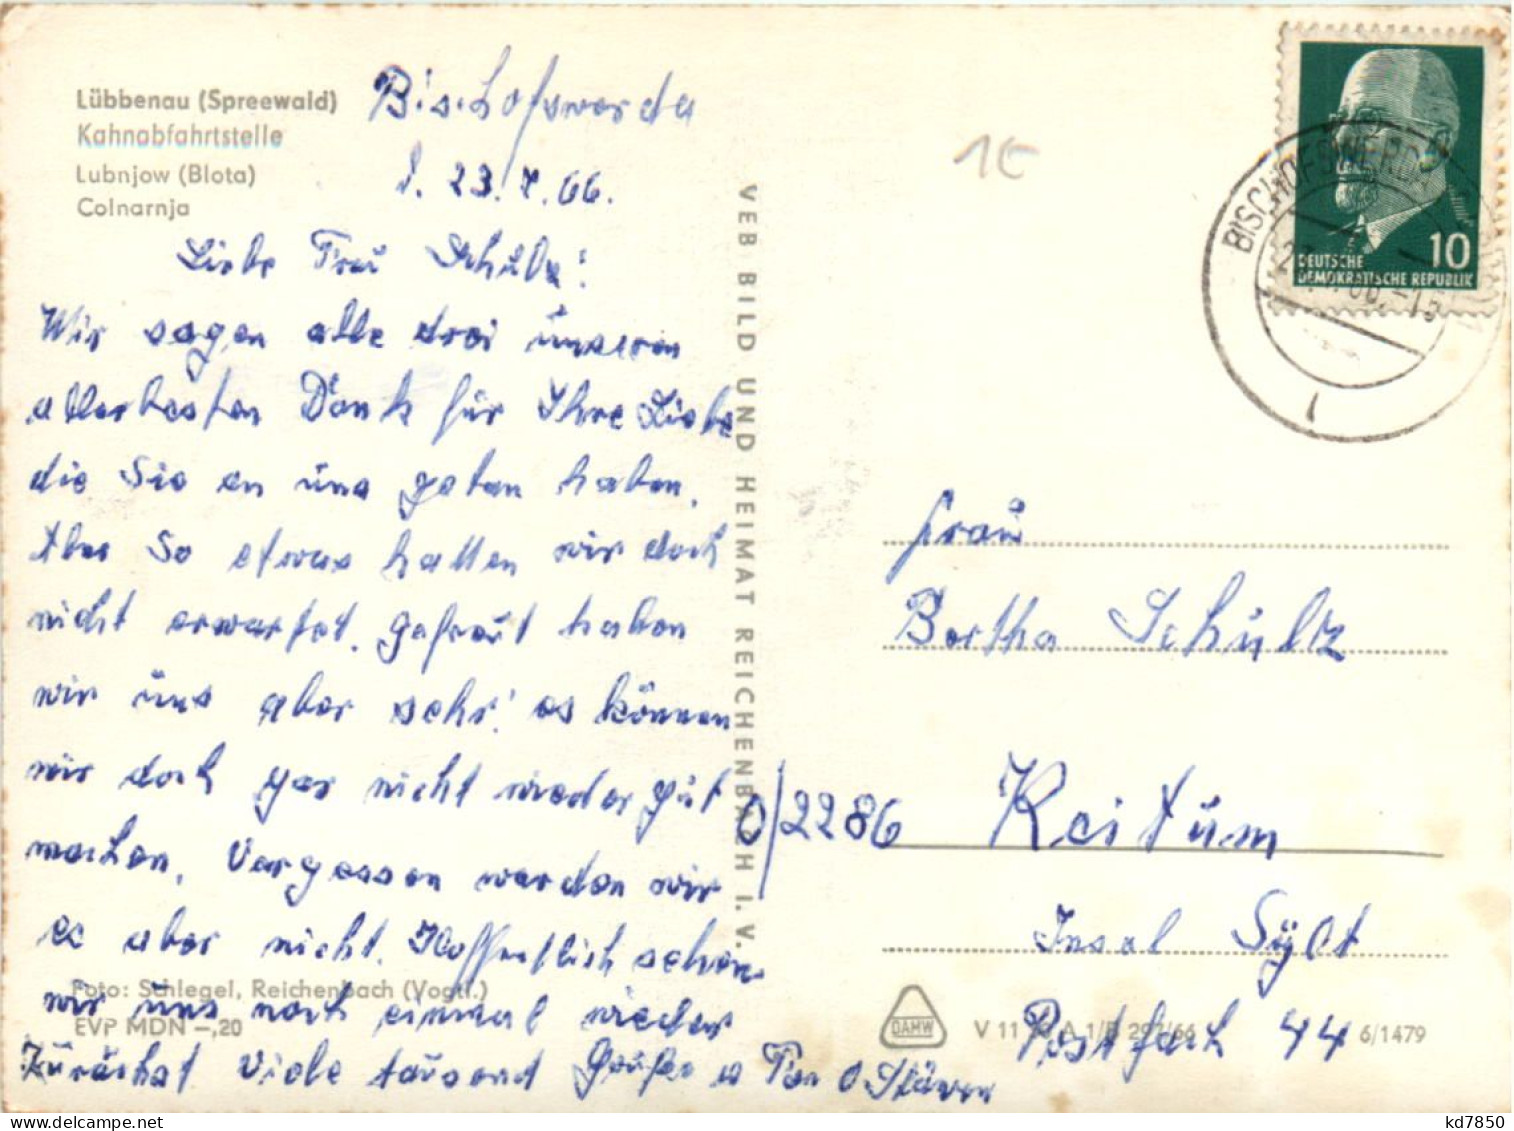 Lübbenau (Spreewald)
Kahnabfahrtstelle
Lubnjow (Blota)
Colnarnja
Bischofswerda
d. 23.7.66.
Liebe Frau Schulz!
Wir sagen alle drei unseren
allerbesten Dank für Ihre Liebe
die Sie an uns getan haben.
Aber So etwas hatten wir doch
nicht erwartet. gefreut haben
wir uns aber sehr! es können
wir doch gar nicht wieder gut
machen. Vergessen werden wir
es aber nicht. Hoffentlich sehen
wir uns noch einmal wieder
Zunächst Viele tausend Grüße
Foto: Schlegel, Reichenbach (Vogtl.)
EVP MDN -,20
VEB BILD UND HEIMAT REICHENBACH I. V.
1€
BISCHOFSWERDA
1
10
DEUTSCHE
DEMOKRATISCHE REPUBLIK
Frau
Bertha Schultz
0/2286 Keitum
Insel Sylt
Postfach 44
DAMW
V 11 A 1/B 297/66 6/1479
kd7850